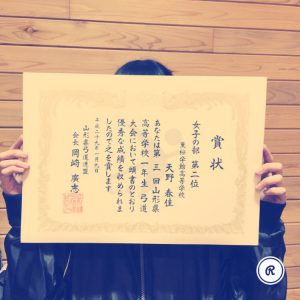 賞状
女子の部 第二位
東桜学館高等学校
天野 春佳
あなたは第三回山形県
高等学校一年生弓道
大会において頭書のとおり
優秀な成績を収められま
したので之を賞します
平成二十九年一月九日
山形県弓道連盟
会長 岡崎 廣志
R